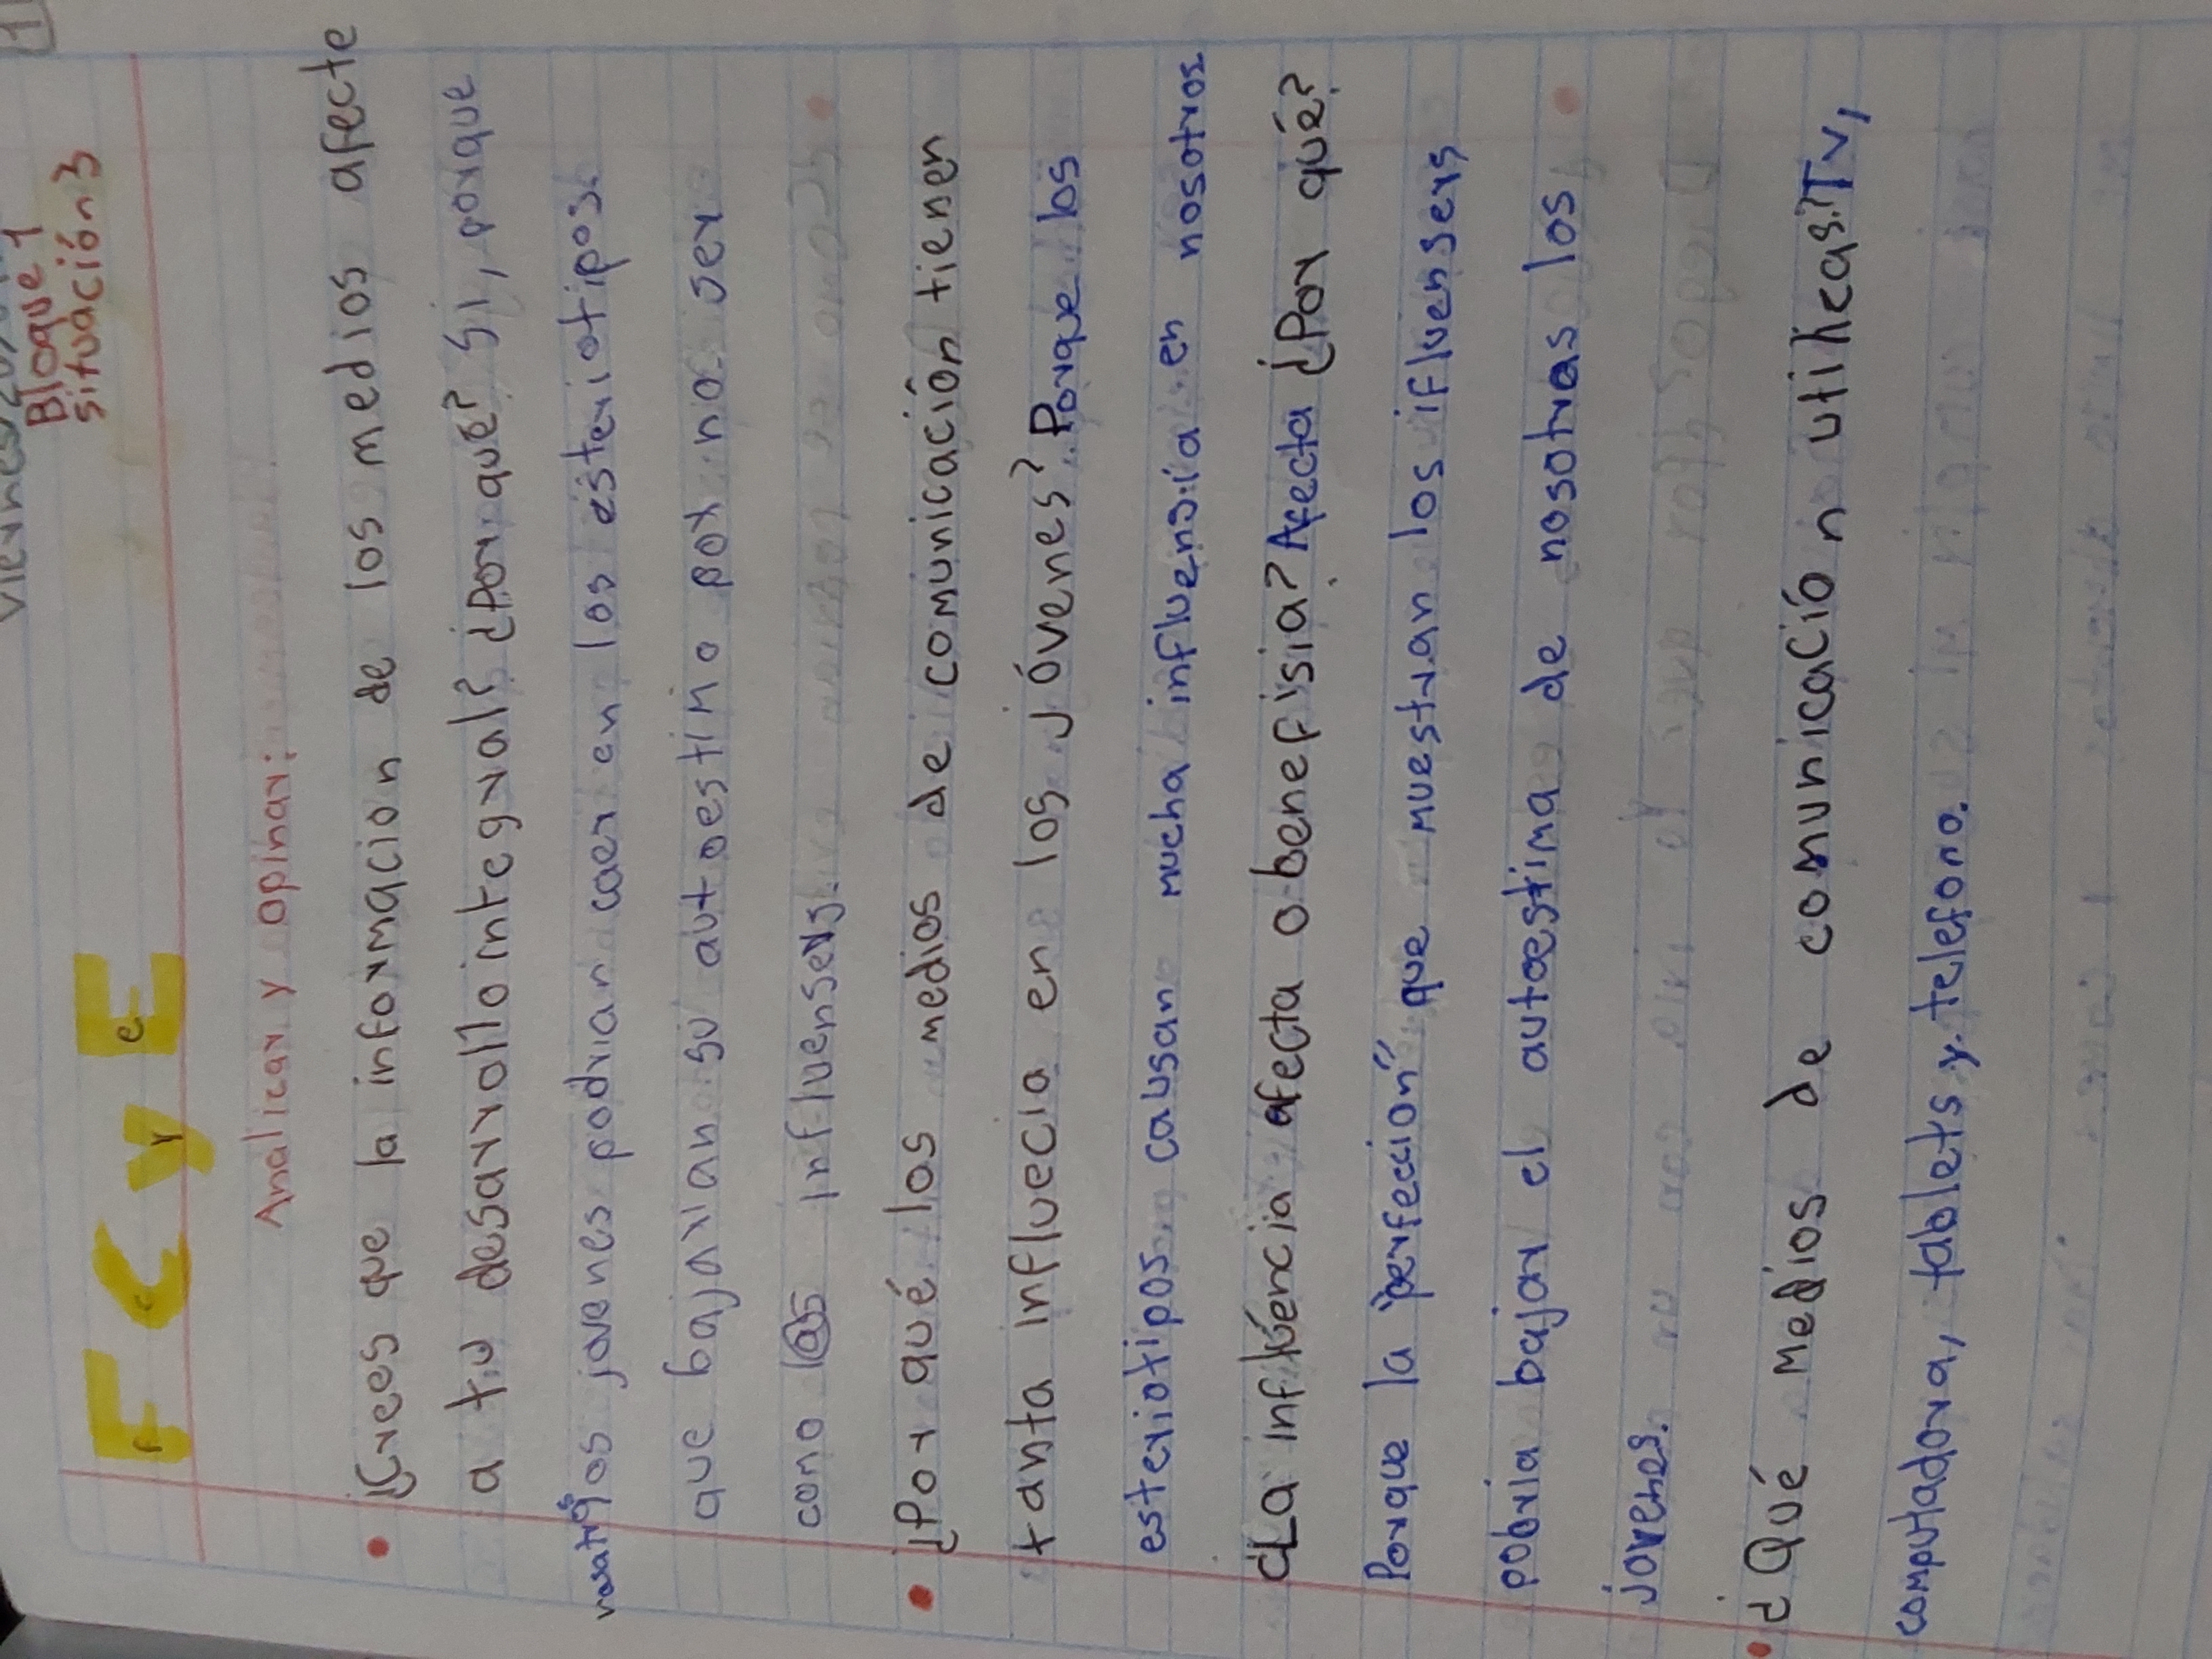 Bloque 1
situación 3
F C y E
Analicar y opinar:
¿Crees que la informacion de los medios afecte
a tu desarrollo integral? ¿Por qué? Si, porque
nosotros los jovenes podrian caer en los esteriotipos
que bajarian su autoestimo por no ser
como l@s influensers.
¿Por qué los medios de comunicación tienen
tanta influecia en los jóvenes? Porque los
esteriotipos causan mucha influensia en nosotros
¿La influencia afecta o benefisia? Afecta ¿Por qué?
Porque la "perfección" que muestran los ifluensers
pobria bajar el autoestima de nosotras los
jovenes.
¿Qué medios de comunicación utilicas? Tv,
computadora, tablets y telefono.